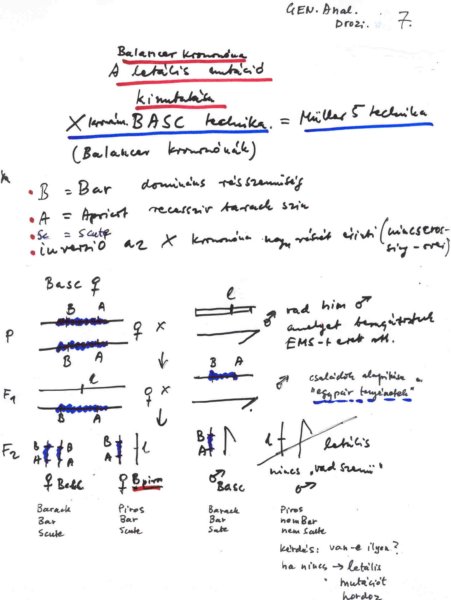 GEN. Anal.
Drozi. 7.
Balancer kromoszóma
A letális mutáció
kimutatása
X krom. BASC technika. = Müller 5 technika
(Balancer kromoszómák)
• B = Bar domináns résszeműség
• A = Apricot recesszív barack szín
• Sc = Scute
• inverzió az X kromoszóma nagy részét érinti (nincs cros-
sing-over)
Basc ♀
B A l
P ♀ X ♂ vad hím ♂
B A amelyet
EMS-t
l B A
F1 ♀ X ♂ családok alapítása
"egypár tenyészetek"
F2 B B B l B l letális
A A A A nincs "vad szemű"
♀ Basc ♀ B piros ♂ Basc ♂
Barack Piros Barack Piros
Bar Bar Bar nem Bar
Scute Scute Scute nem Scute
kérdés: van-e ilyen?
ha nincs → letális
mutációt
hordoz